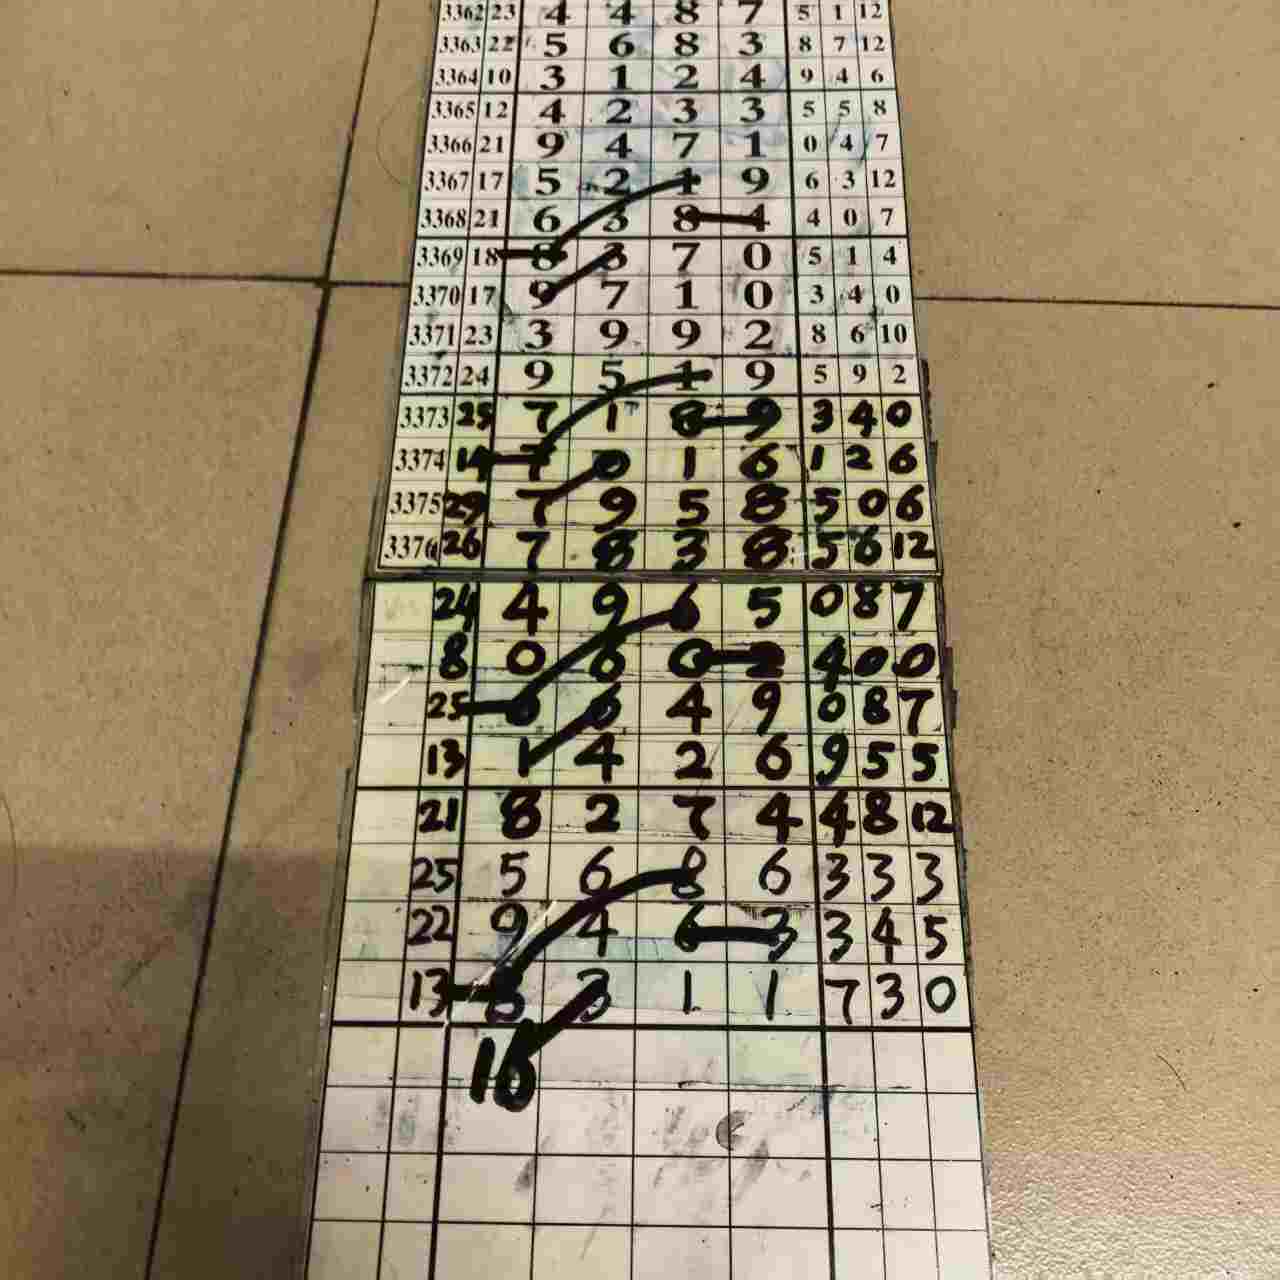 3362 23 4 4 8 7 5 1 12
3363 22 5 6 8 3 8 7 12
3364 10 3 1 2 4 9 4 6
3365 12 4 2 3 3 5 5 8
3366 21 9 4 7 1 0 4 7
3367 17 5 2 1 9 6 3 12
3368 21 6 3 8 4 4 0 7
3369 18 8 3 7 0 5 1 4
3370 17 9 7 1 0 3 4 0
3371 23 3 9 9 2 8 6 10
3372 24 9 5 1 9 5 9 2
3373 25 7 1 8 9 3 4 0
3374 14 7 0 1 6 1 2 6
3375 29 7 9 5 8 5 0 6
3376 26 7 8 3 8 5 6 12
24 4 9 6 5 0 8 7
8 0 6 0 2 4 0 0
25 6 6 4 9 0 8 7
13 1 4 2 6 9 5 5
21 8 2 7 4 4 8 12
25 5 6 8 6 3 3 3
22 9 4 6 3 3 4 5
13 8 3 1 1 7 3 0
16